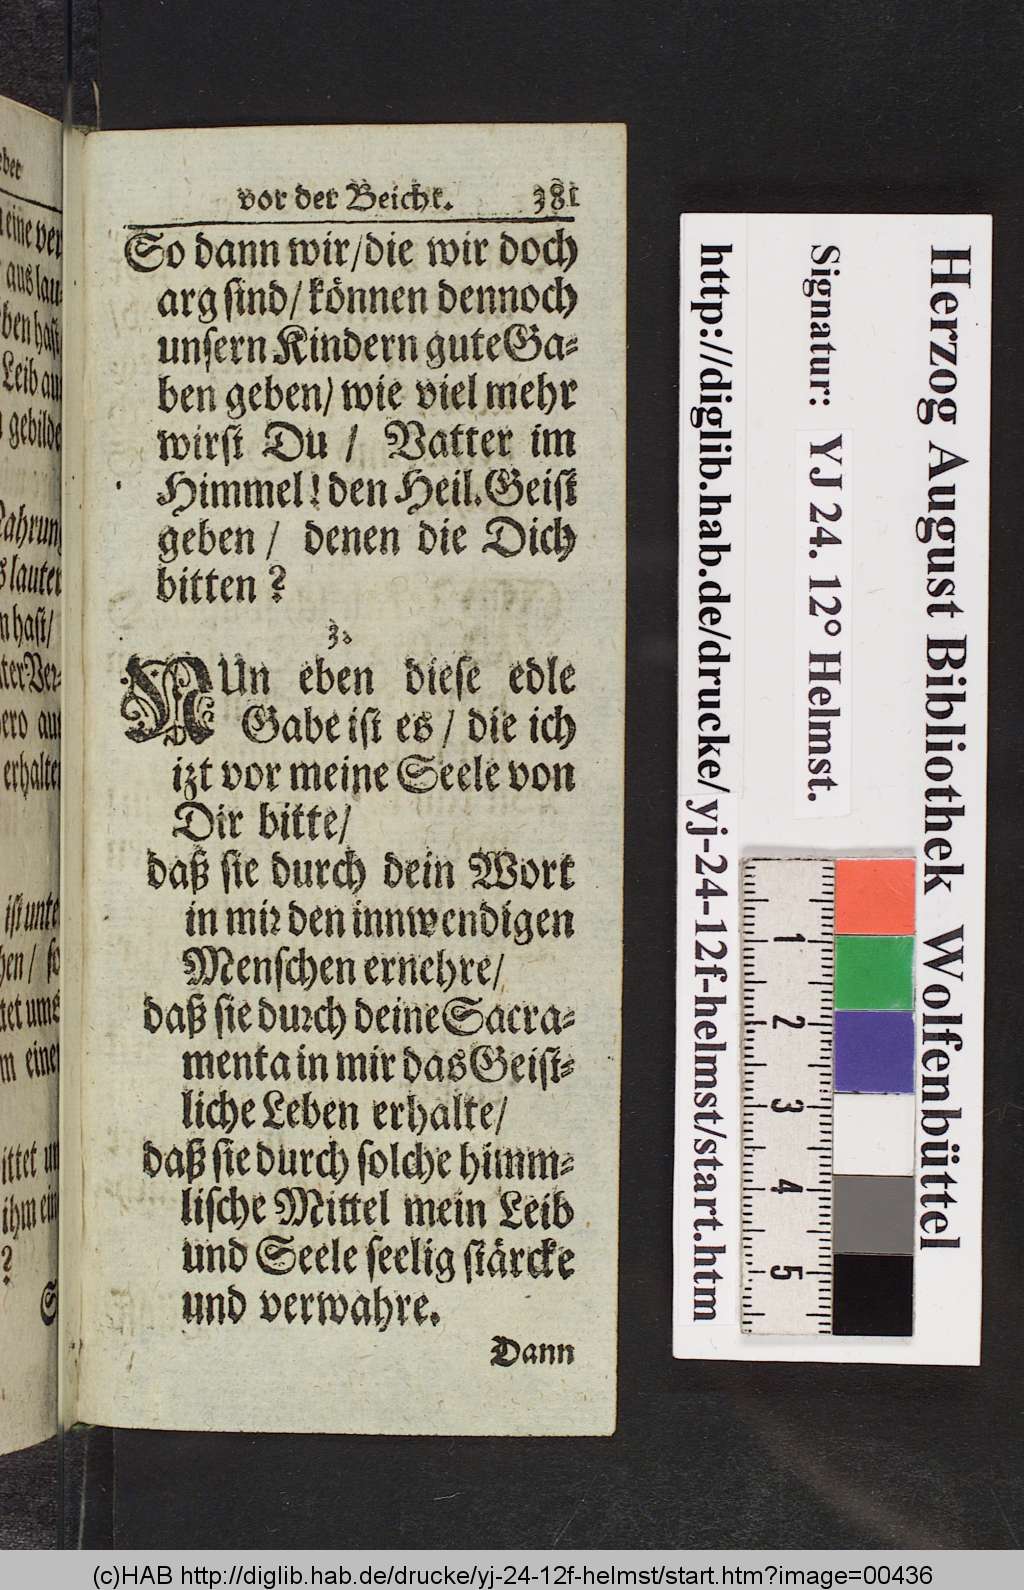 vor der Beicht. 381
So dann wir/die wir doch
arg sind/ können dennoch
unsern Kindern gute Ga-
ben geben/ wie viel mehr
wirst Du / Vatter im
Himmel! den Heil. Geist
geben / denen die Dich
bitten?
3.
NUn eben diese edle
Gabe ist es / die ich
izt vor meine Seele von
Dir bitte/
daß sie durch dein Wort
in mir den innwendigen
Menschen ernehre/
daß sie durch deine Sacra-
menta in mir das Geist-
liche Leben erhalte/
daß sie durch solche himm-
lische Mittel mein Leib
und Seele seelig stärcke
und verwahre.
Dann
eine ver
aus lau-
ben hast
Leib au
gebilde
Nahrung
lauter
hast/
erhalte
ist unte
hen / so
ihm ein
?
S
Herzog August Bibliothek Wolfenbüttel
Signatur: YJ 24. 12° Helmst.
http://diglib.hab.de/drucke/yj-24-12f-helmst/start.htm
1
2
3
4
5
(c)HAB http://diglib.hab.de/drucke/yj-24-12f-helmst/start.htm?image=00436